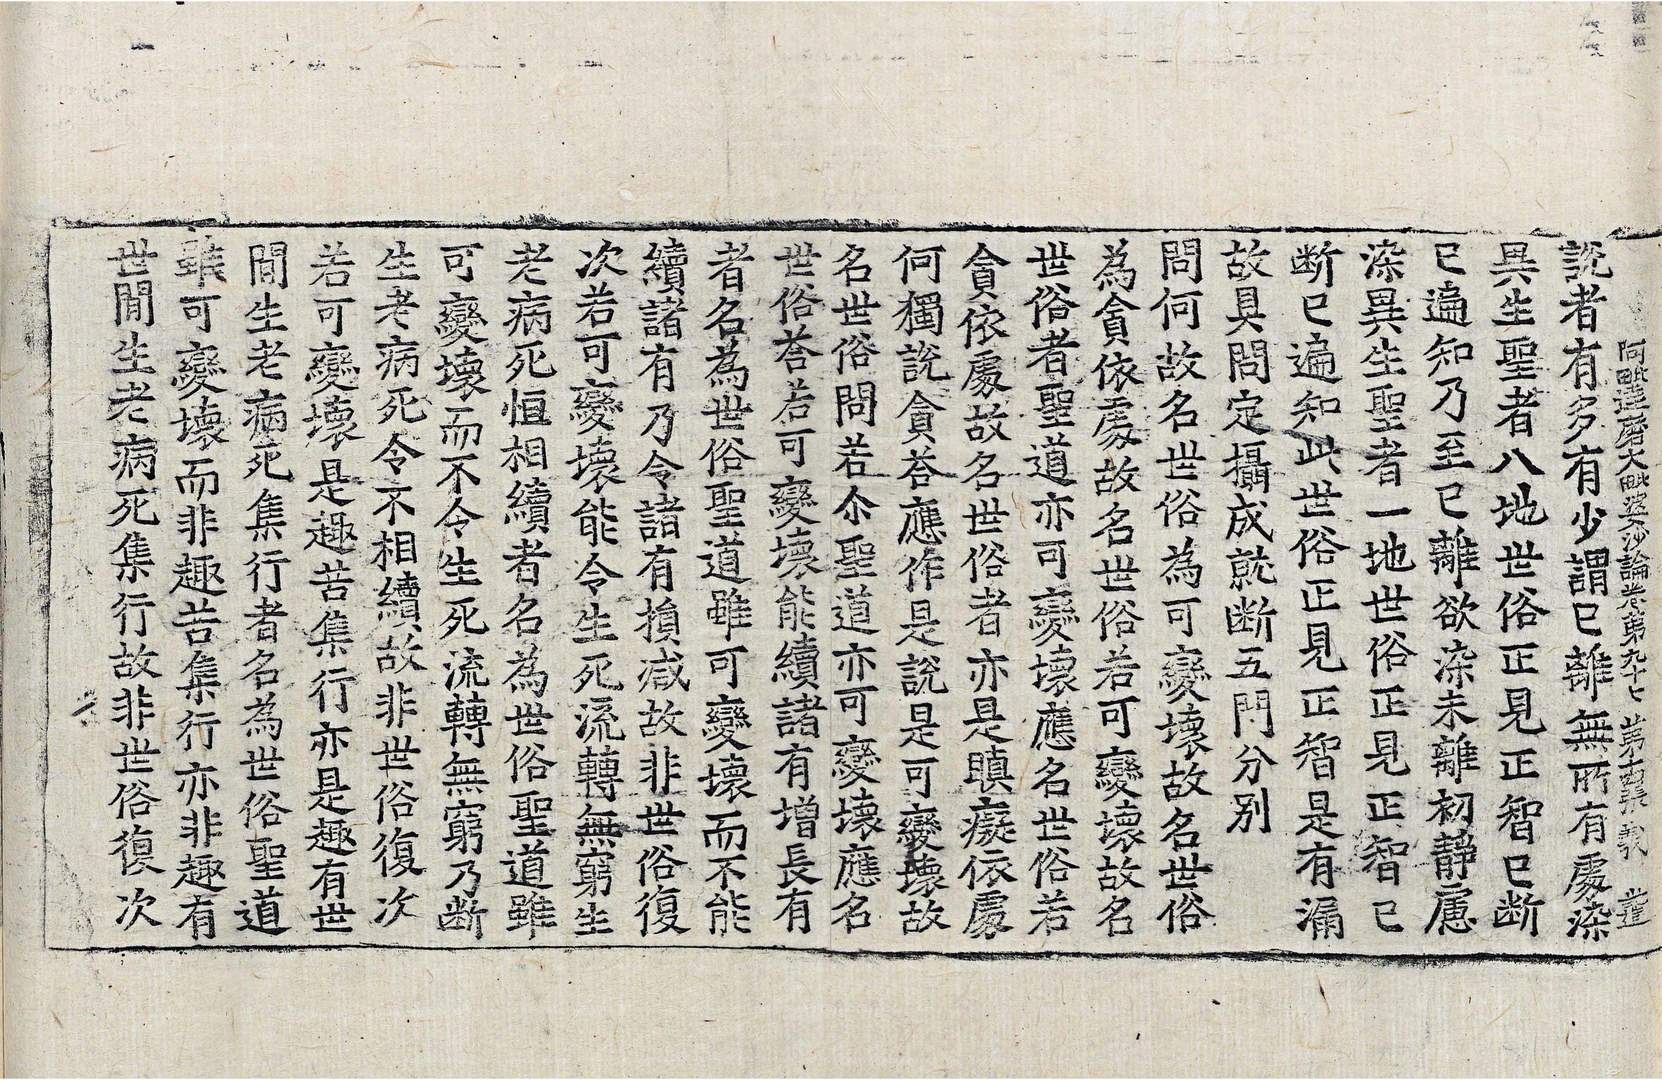 阿毗達磨大毗婆沙論卷第九十七 第十四張 義
說者有多有少謂已離無所有處染
異生聖者八地世俗正見正智已断
已遍知乃至已離欲染未離初靜慮
染異生聖者一地世俗正見正智已
断已遍知此世俗正見正智是有漏
故具問定攝成就断五門分別
問何故名世俗為可變壞故名世俗
為貪依處故名世俗若可變壞故名
世俗者聖道亦可變壞應名世俗若
貪依處故名世俗者亦是瞋癡依處
何獨說貪荅應作是說是可變壞故
名世俗問若尒聖道亦可變壞應名
世俗荅若可變壞能續諸有增長有
者名為世俗聖道雖可變壞而不能
續諸有乃令諸有損減故非世俗復
次若可變壞能令生死流轉無窮生
老病死恒相續者名為世俗聖道雖
可變壞而不令生死流轉無窮乃断
生老病死令不相續故非世俗復次
若可變壞是趣苦集行亦是趣有世
閒生老病死集行者名為世俗聖道
雖可變壞而非趣苦集行亦非趣有
世閒生老病死集行故非世俗復次